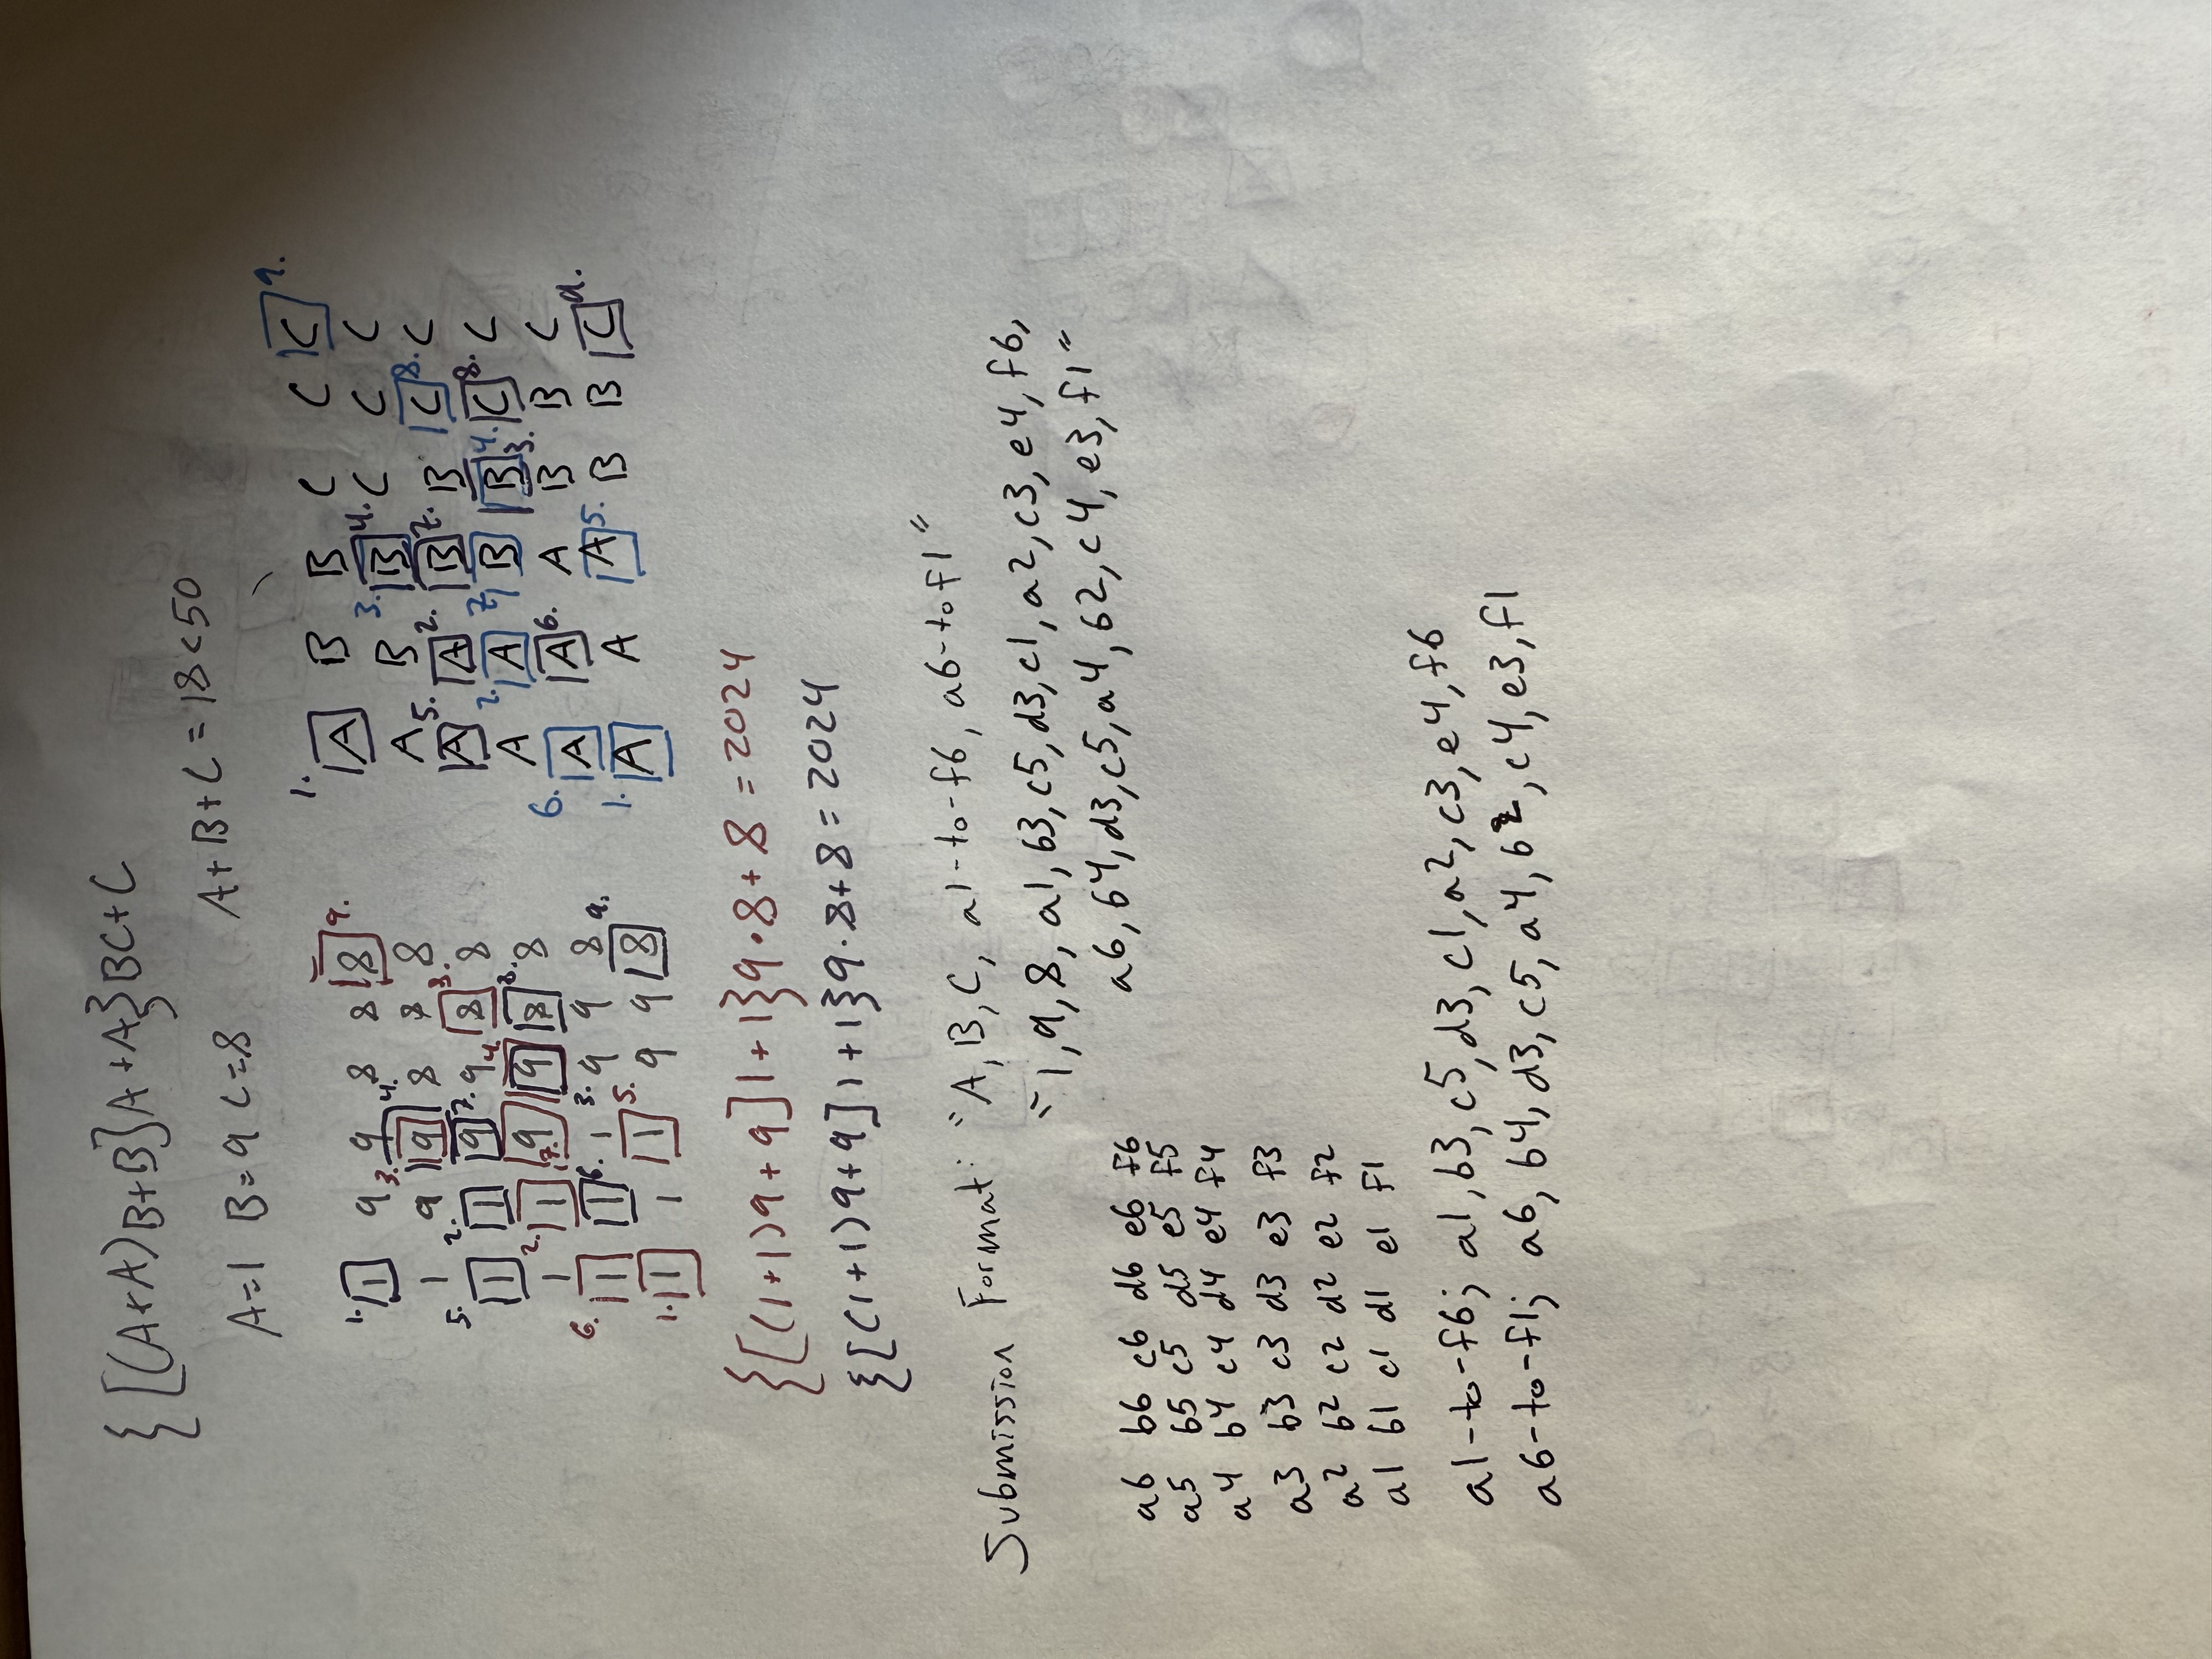 {[(A+A)B+B]A+A}BC+C
A=1 B=9 C=8 A+B+C=18<50
1. 1 9 9 8 8 8 9.
1 9 3. 9 4. 8 8 8
5. 1 2. 1 9 7. 9 8 3. 8
1 2. 1 7. 9 4. 9 8 8. 8
6. 1 1 6. 1 3. 9 9 8
1. 1 1 1 5. 9 9 8 9.
1. A B B C C C 9.
A B 3. B 4. C C C
A 5. A 2. B 7. B C 8. C
A 2. A 7. B B 4. 3. C 8. C
6. A A 6. A B B C
1. A A A 5. B B C 9.
{[(1+1)9+9]1+1}9·8+8=2024
{[(1+1)9+9]1+1}9·8+8=2024
Submission Format: "A, B, C, a1-to-f6, a6-to f1"
"1,9,8, a1, b3, c5, d3, c1, a2, c3, e4, f6,
a6, b4, d3, c5, a4, b2, c4, e3, f1"
a6 b6 c6 d6 e6 f6
a5 b5 c5 d5 e5 f5
a4 b4 c4 d4 e4 f4
a3 b3 c3 d3 e3 f3
a2 b2 c2 d2 e2 f2
a1 b1 c1 d1 e1 f1
a1-to-f6; a1, b3, c5, d3, c1, a2, c3, e4, f6
a6-to-f1; a6, b4, d3, c5, a4, b2, c4, e3, f1